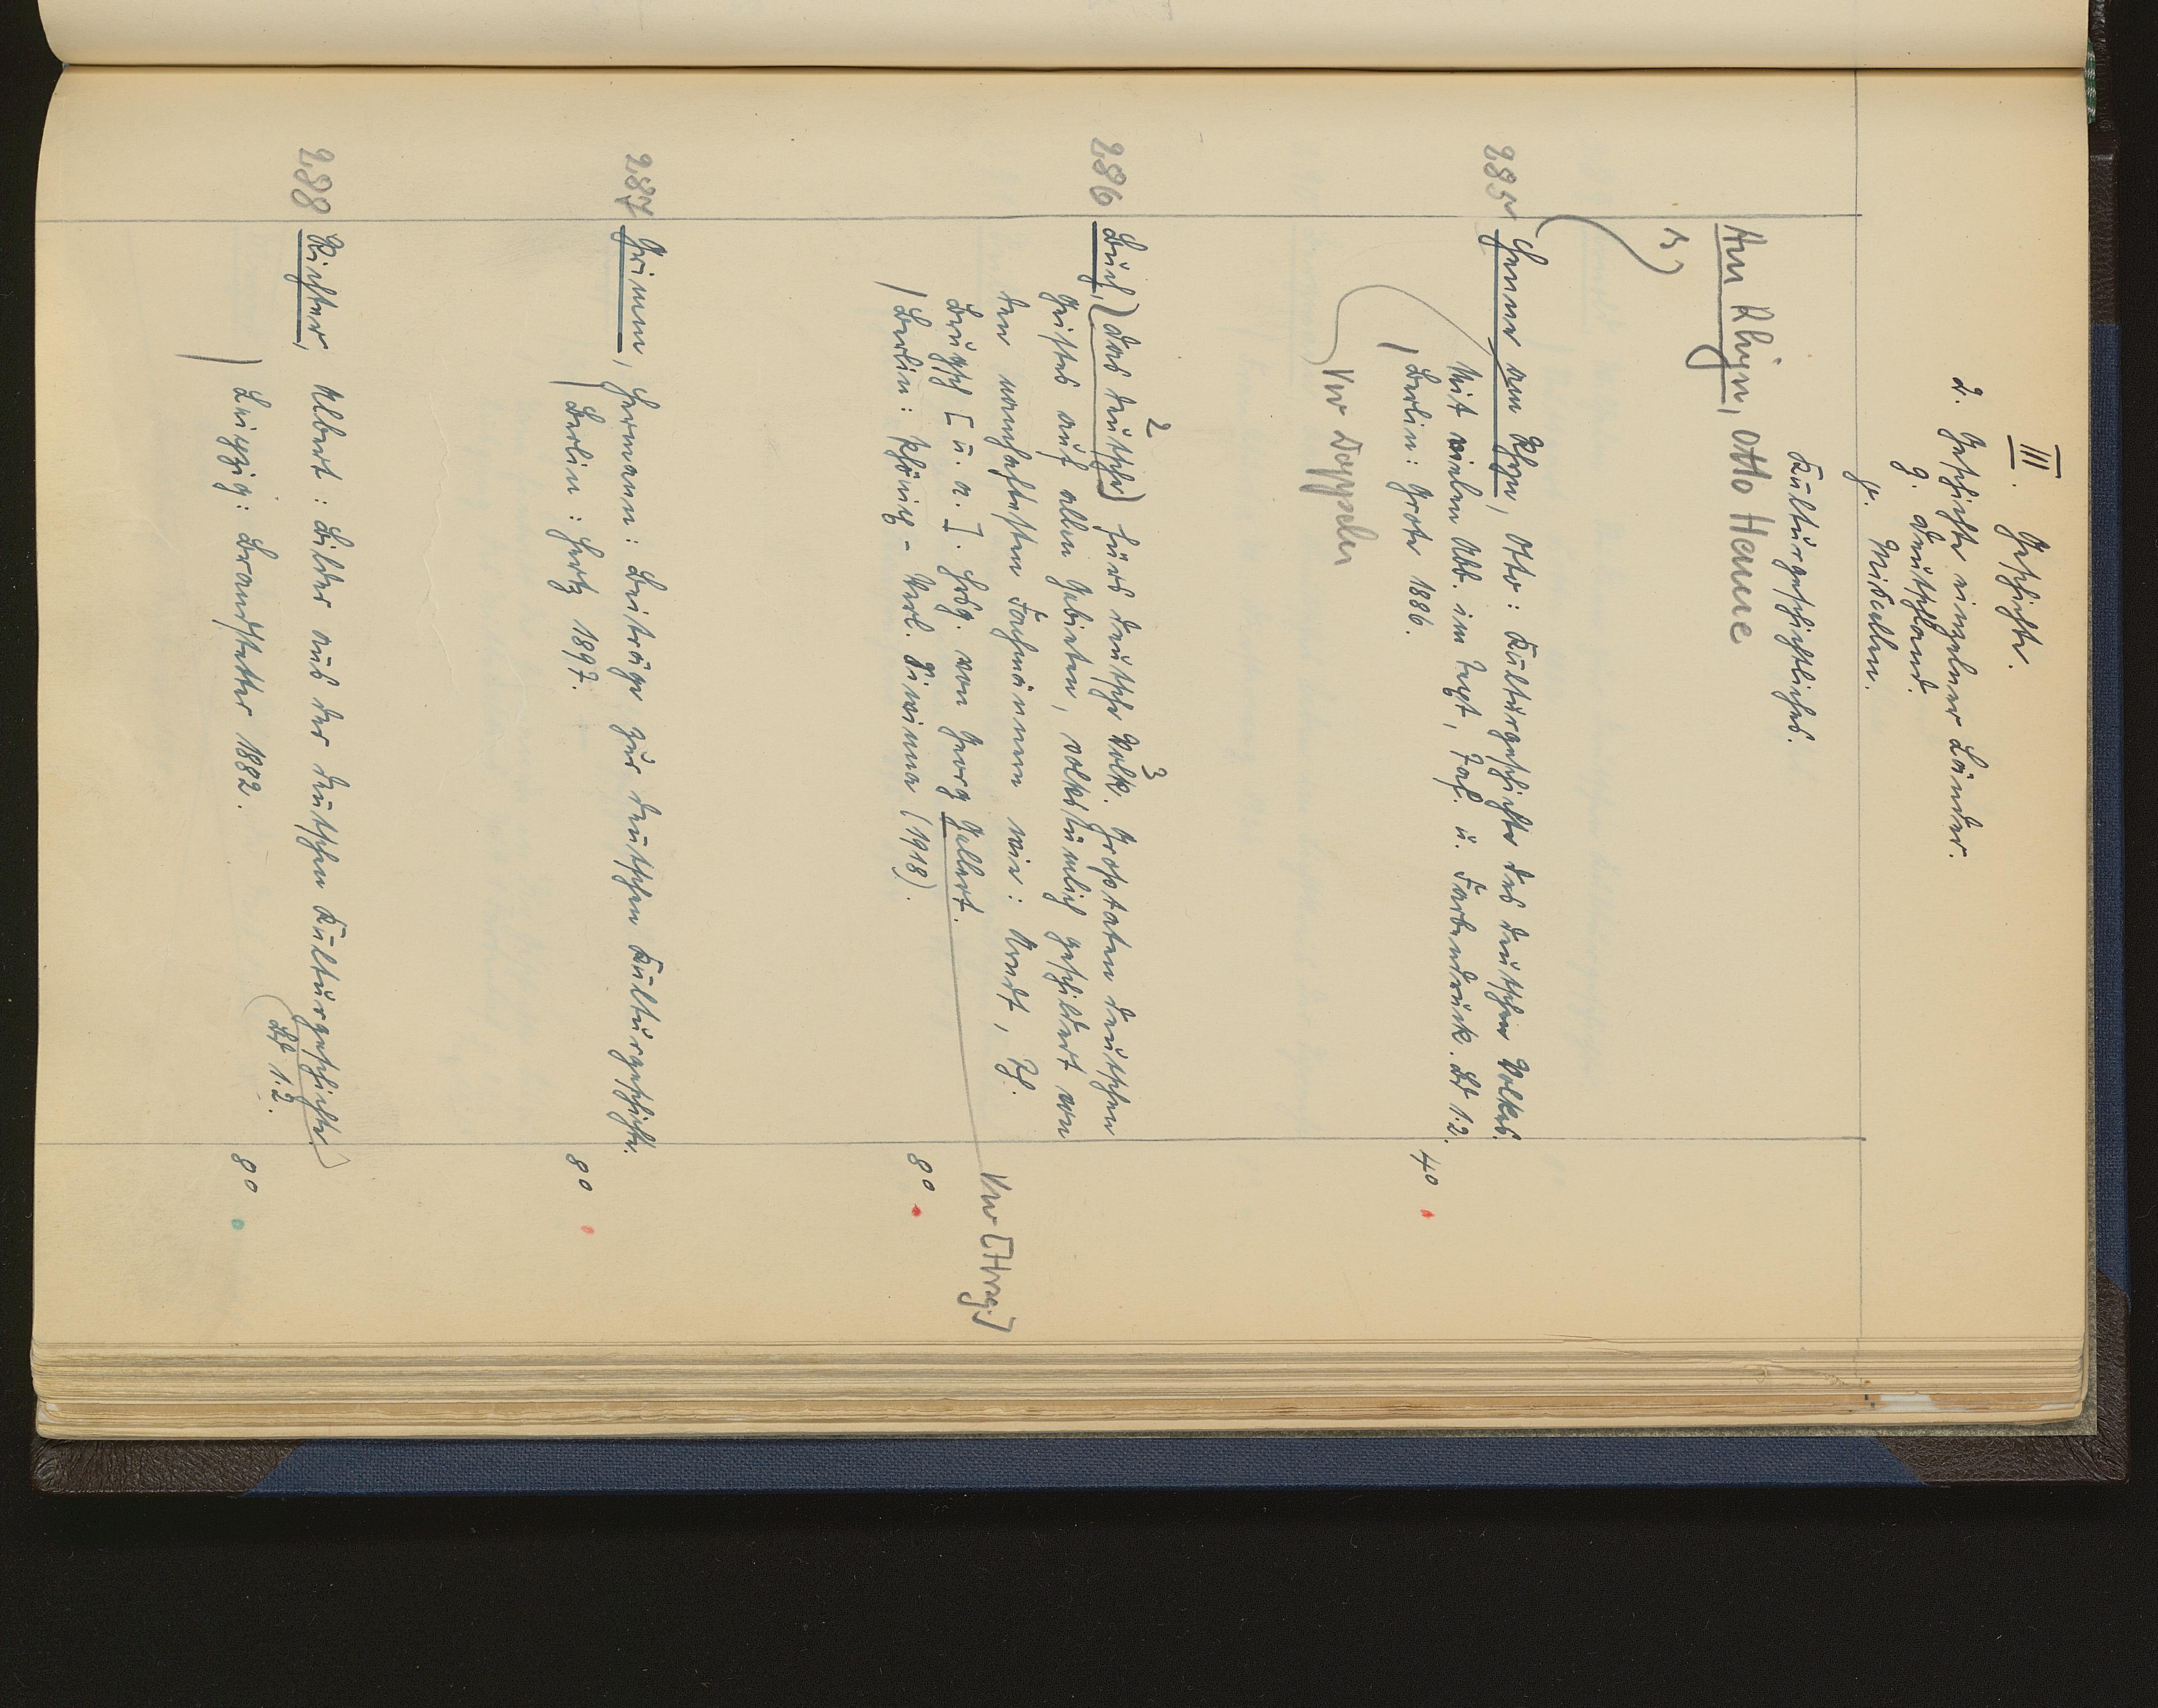 III. Geschichte.
2. Geschichte einzelner Länder.
g. Deutschland.
γ. Miscellen.
Kulturgeschichtliches.
Am Rhyn, Otto Henne
285 Henne am Rhyn, Otto: Kulturgeschichte des deutschen Volkes.
Mit vielen Abb. im Text, Taf. u. Farbendruck. Bd 1.2.
Berlin: Grote 1886. 4°
Vw Doppeln
2 3
286 Buch, das deutsche fürs deutsche Volk. Grosstaten deutschen
Geistes auf allen Gebieten, volkstümlich geschildert von
den namhaftesten Fachmännern wie: Arendt, Th.
Birt [u. a.]. Hrsg. von Georg Gellert.
Vw [Hrsg.]
Berlin: Verl. (1918). 8°
287 Grimm, Hermann: Beiträge zur deutschen Kulturgeschichte.
Berlin: Hertz 1897. 8°
288 Richter, Albert: Bilder aus der deutschen Kulturgeschichte.
Bd 1.2.
Leipzig: Brandstetter 1882. 8°